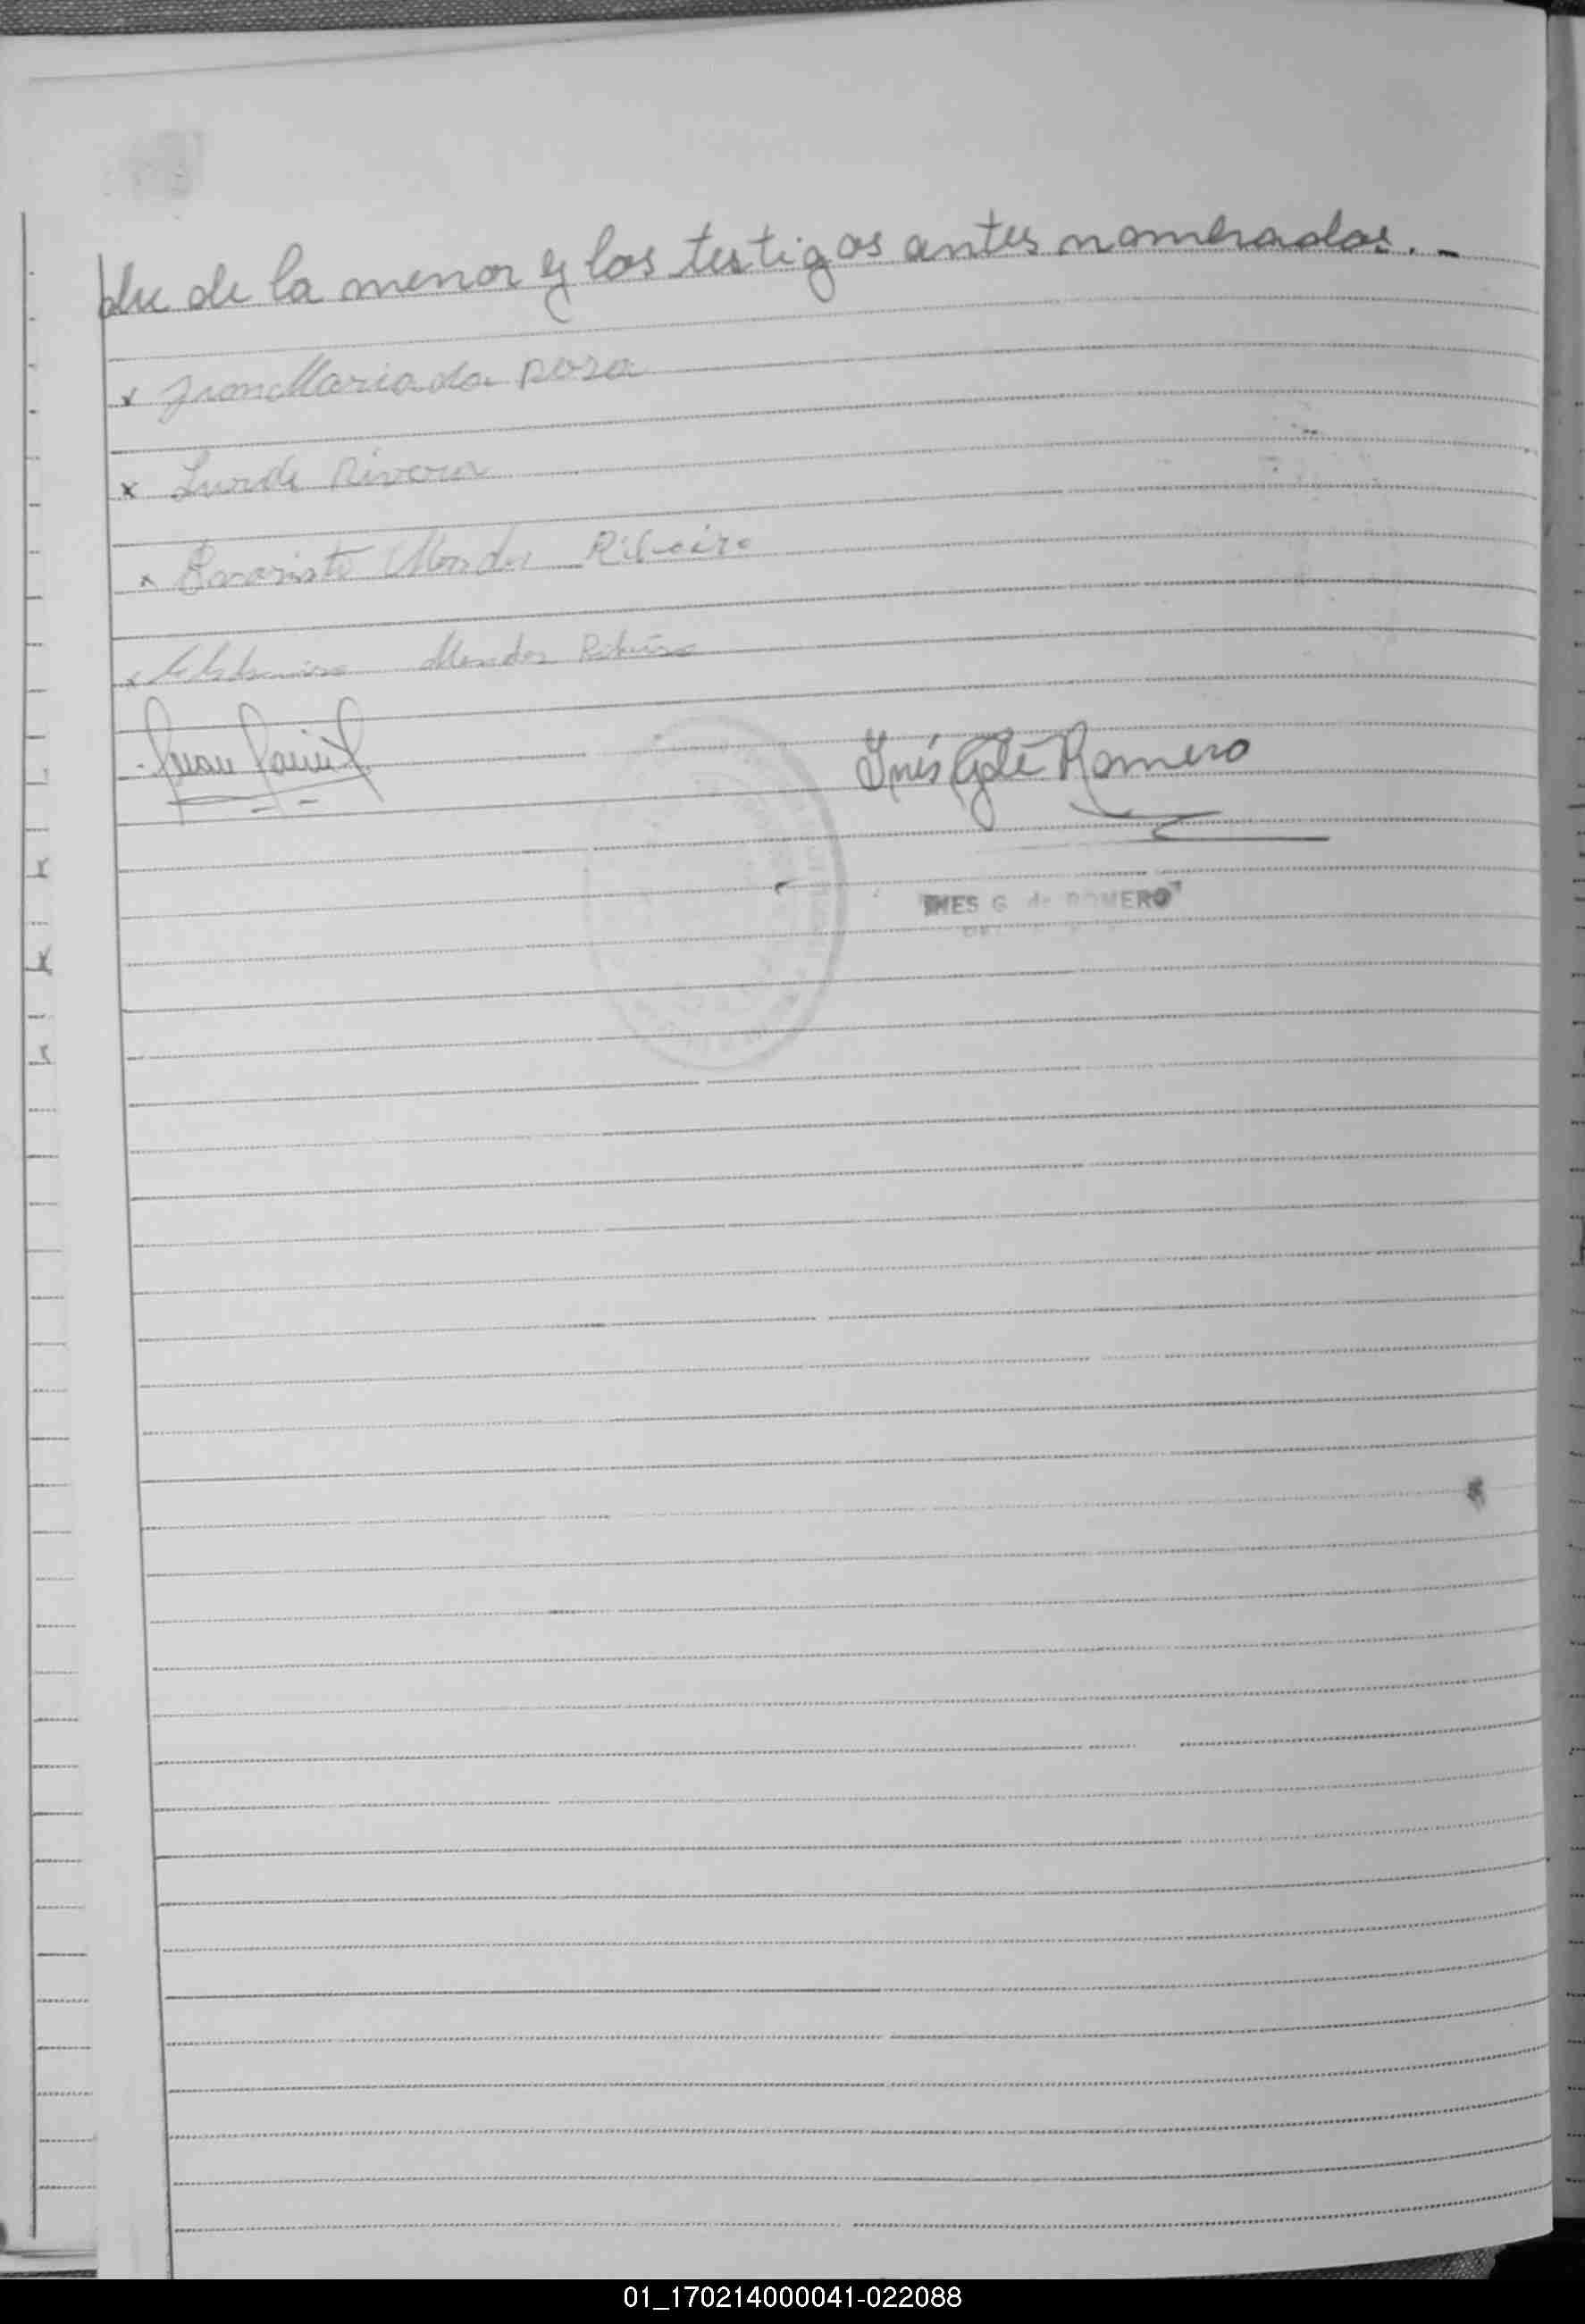 dre de la menor y los testigos antes nombrados.-
x Juan Maria da rosa
x Lurde Rivera
x Evaristo Mendes Ribeiro
x Mendes Ribeiro
Juan
Inés G. de Romero
INES G. de ROMERO
01_170214000041-022088